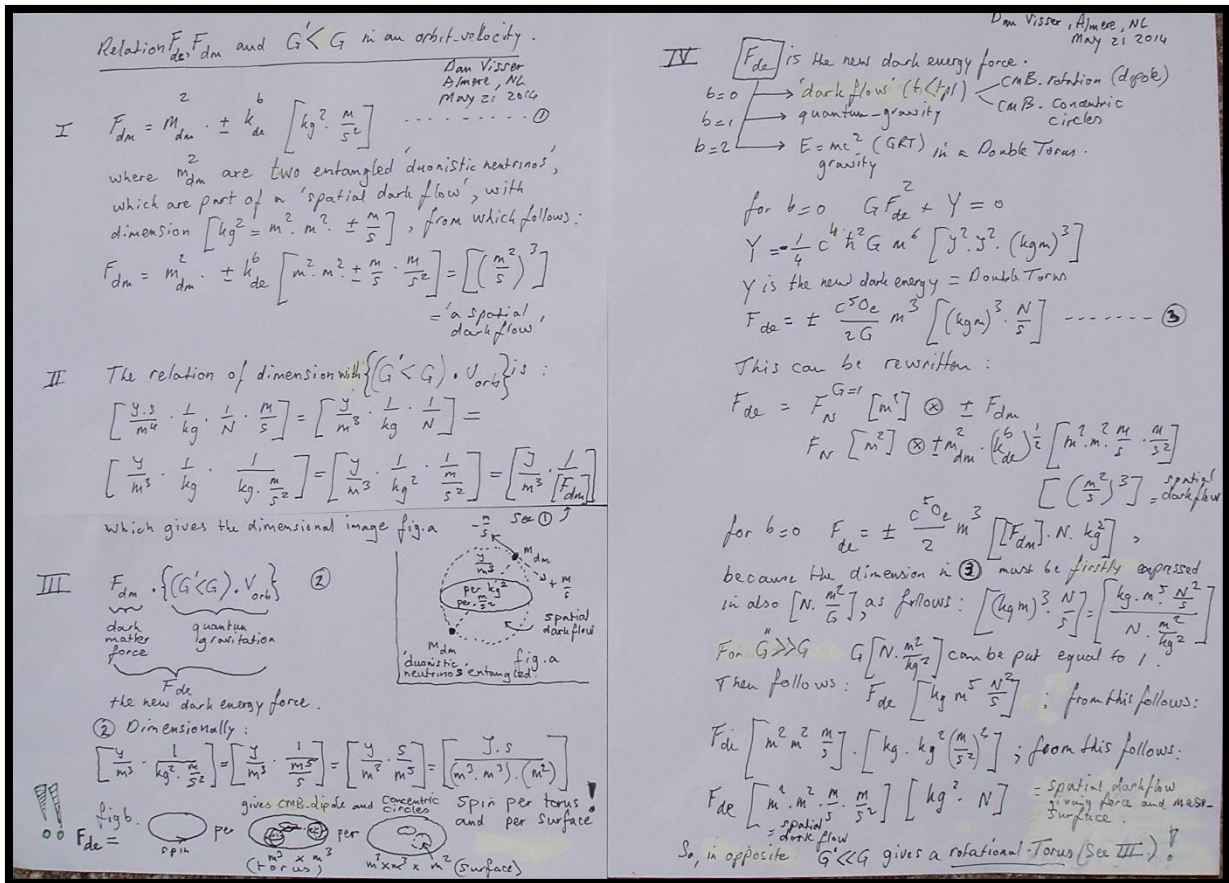 Relation F_de, F_dm and G'<G in an orbit-velocity.
Dan Visser
Almere, NL
May 21 2014
I F_dm = m_dm^2 · ± k_de^b [kg^2 · m/s^2] ---------- ①
where m_dm^2 are two entangled 'duonistic neutrinos',
which are part of a 'spatial dark flow', with
dimension [kg^2 = m^2 · m^2 · ± m/s], from which follows:
F_dm = m_dm^2 · ± k_de^b [m^2 · m^2 · ± m/s · m/s^2] = [(m^2/s)^3]
= 'a spatial
dark flow'
II The relation of dimension with {(G'<G) · v_orb} is :
[J.s/m^4 · 1/kg · 1/N · m/s] = [J/m^3 · 1/kg · 1/N] =
[J/m^3 · 1/kg · 1/(kg · m/s^2)] = [J/m^3 · 1/kg^2 · 1/(m/s^2)] = [J/m^3 · 1/[F_dm]]
see ①
which gives the dimensional image fig.a
- m/s
m_dm
J/m^3
+ m/s
per kg^2
per m/s^2
spatial
dark flow
m_dm
'duonistic
neutrinos' entangled.
fig.a
III F_dm · {(G'<G) · v_orb} ②
dark
matter
force
quantum
gravitation
F_de
the new dark energy force.
② Dimensionally :
[J/m^3 · 1/(kg^2 · m/s^2)] = [J/m^3 · 1/(m^5/s)] = [J/m^3 · s/m^5] = [J.s/((m^3 . m^3) . (m^2))]
!! fig b.
gives CMB-dipole and concentric
circles
spin per torus
and per surface !
F_de = spin per
m^3 x m^3
(torus)
per
m^3 x m^3 x m^2 (surface)
Dan Visser, Almere, NL
May 21 2014
IV F_de is the new dark energy force.
b=0 → 'dark flow' (t_i<t_pl) CMB-rotation (dipole)
CMB-concentric
circles
b=1 → quantum-gravity
b=2 → E=mc^2 (GRT) in a Double Torus.
gravity
for b=0 G F_de^2 + Y = 0
Y = -1/4 c^4 ħ^2 G m^6 [J^2 . J^2 . (kgm)^3]
Y is the new dark energy = Double Torus
F_de = ± c^5 O_e/2G m^3 [(kgm)^3 · N/s] ------- ③
This can be rewritten :
F_de = F_N^{G=1} [m^5] ⊗ ± F_dm
F_N [m^2] ⊗ ± m_dm^2 · (k_de^b)^{1/2} [m^2 . m^2 m/s · m/s^2]
[(m^2/s)^3] = spatial
dark flow
for b=0 F_de = ± c^5 O_e/2 m^3 [[F_dm] . N . kg^2] ,
because the dimension in ③ must be firstly expressed
in also [N . m^2/G], as follows : [(kgm)^3 · N/s] = [kg . m^5 N^2/s / N . m^2/kg^2]
For G''>>G G [N . m^2/kg^2] can be put equal to 1.
Then follows : F_de [kg m^5 N^2/s] ; from this follows:
F_de [m^2 m^2 m/s] . [kg . kg^2 (m/s^2)^2] ; from this follows:
F_de [m^2 . m^2 . m/s . m/s^2] [kg^2 · N] = spatial dark flow
giving force and mass-
surface.
= spatial
dark flow
So, in opposite G'<<G gives a rotational-Torus (See III.) !